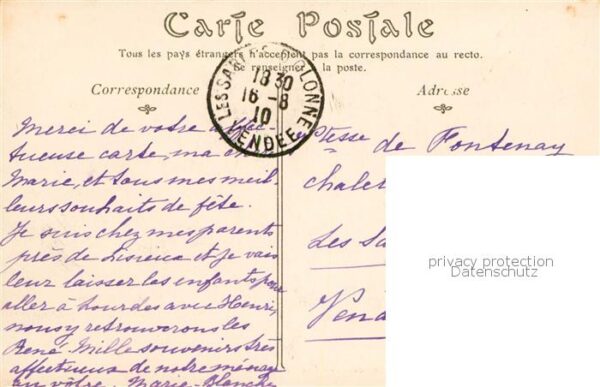 Carte Postale
Tous les pays étrangers n'acceptent pas la correspondance au recto.
Se renseigner à la poste.
Correspondance
Adresse
LES SABLES D'OLONNE
18 30
16 - 8
10
VENDEE
Merci de votre affec-
tueuse carte, ma
Marie, et tous mes meil-
leurs souhaits de fête.
Je suis chez mes parents
près de Lisieux et je vais
leur laisser les enfants pour
aller à Lourdes avec Henri,
nous y retrouverons les
René. Mille souvenirs très
affectueux de notre ménage
au vôtre. Marie-Blanche
Ctesse de Fontenay
Chalet
Les Sa
Vend
privacy protection
Datenschutz